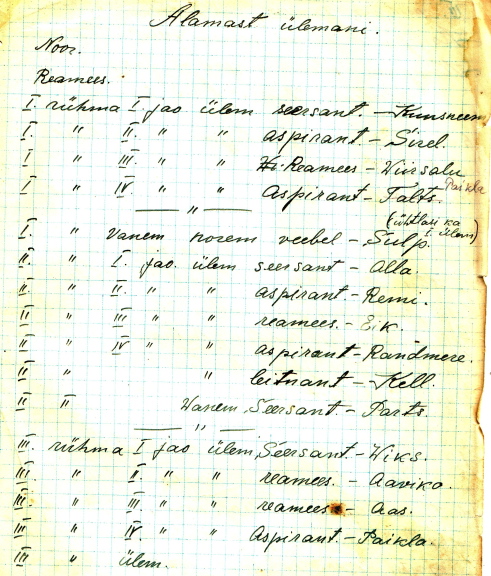 Alamast ülemani.
Noor.
Reamees.
I. rühma I. jao ülem seersant. - Kunsneem
I. " II. " " aspirant - Sirel.
I " III. " " Reamees - Wiirsalu
I " IV. " " Aspirant - Talts. Paikla
— " —
(ühtlasi ka I. ülem)
I. " vanem noorem veebel - Sulp.
II. " I jao. ülem seersant - Alla.
II. " II. " " aspirant - Remi.
II. " III " " reamees. - Eik.
II " IV " " aspirant - Randmere.
II " " leitnant - Kell.
II " Wanem, Seersant. - Parts.
— " —
III. rühma I jao ülem, Seersant. - Wiks.
III. " II. " " reamees. - Aaviko.
III. " III " " reamees - Aas.
III " IV. " " Aspirant. - Paikla.
III " ülem.